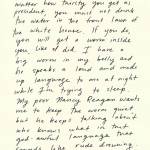 matter how thirsty you get as
president, you must not drink
the water in the front lawn of
the white house. If you do,
you will get a worm inside
you like I did. I have a
big worm in my belly and
he speaks a land and made
up language to me at night
while I'm trying to sleep.
My guy Nancy Reagan wants
me to keep the worm quiet
but he keeps talking about
who knows what in that
god-awful language that
sounds like rude drowning